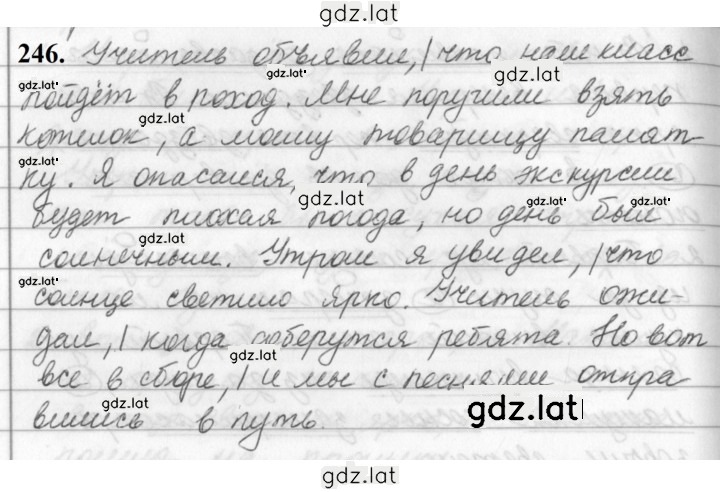 gdz.lat
246. Учитель объявил, | что наш класс
gdz.lat
gdz.lat
пойдёт в поход. Мне поручили взять
gdz.lat
котелок, а моему товарищу палат-
gdz.lat
ку. Я опасался, что в день экскурсии
gdz.lat
gdz.lat gdz.lat
будет плохая погода, но день был
gdz.lat
солнечным. Утром я увидел, | что
gdz.lat
солнце светило ярко. Учитель ожи-
дал, | когда соберутся ребята. Но вот
gdz.lat
все в сборе, | и мы с песнями отпра
gdz.lat
gdz.lat
вились в путь.
gdz.lat